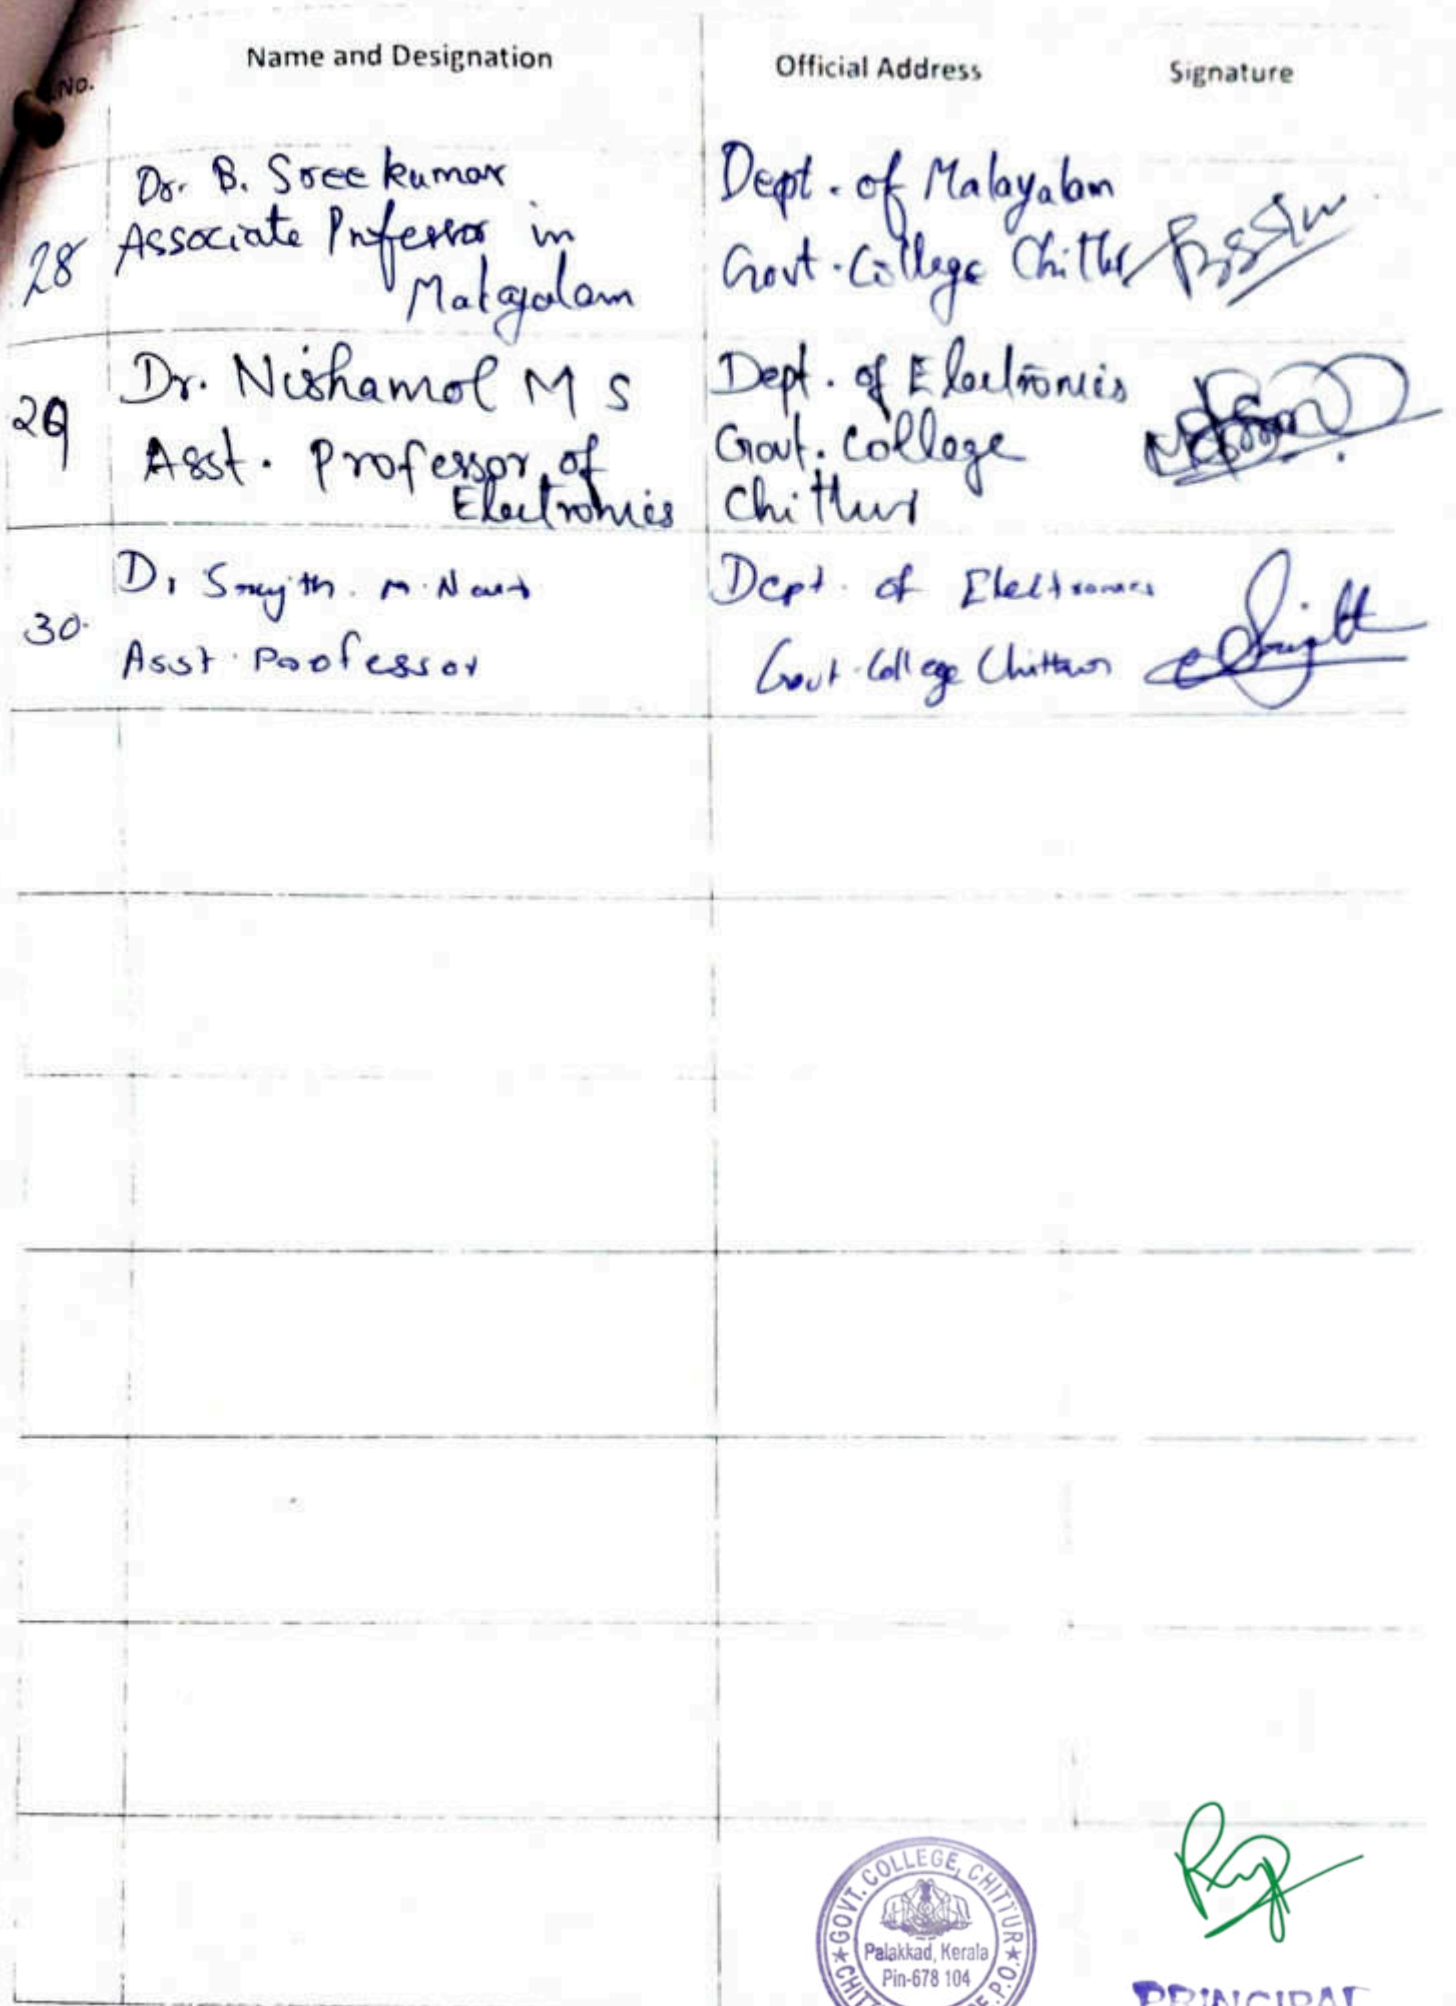 No.
Name and Designation
Official Address
Signature
28
Dr. B. Sreekumar
Associate Professor in
Malayalam
Dept. of Malayalam
Govt. College Chittur
29
Dr. Nishamol M S
Asst. Professor of
Electronics
Dept. of Electronics
Govt. College
Chittur
30.
Asst. Professor
Dept. of Electronics
Govt. College Chittur
GOVT. COLLEGE, CHITTUR
Palakkad, Kerala
Pin-678 104
PRINCIPAL